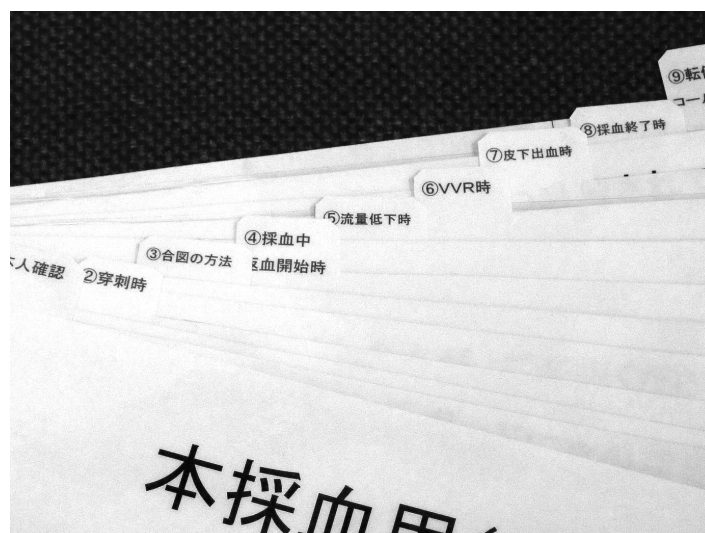 人確認
②穿刺時
③合図の方法
④採血中
返血開始時
⑤流量低下時
⑥VVR時
⑦皮下出血時
⑧採血終了時
⑨転
コー
本採血用